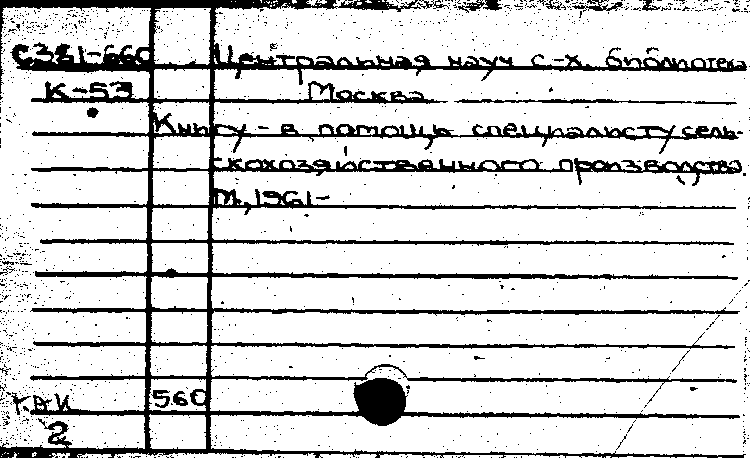 С331-660 Центральная науч с-х. библиотека
К-53 Москва
Книгу - в помощь специалисту сель-
скохозяйственного производства
М., 1961-
560
2